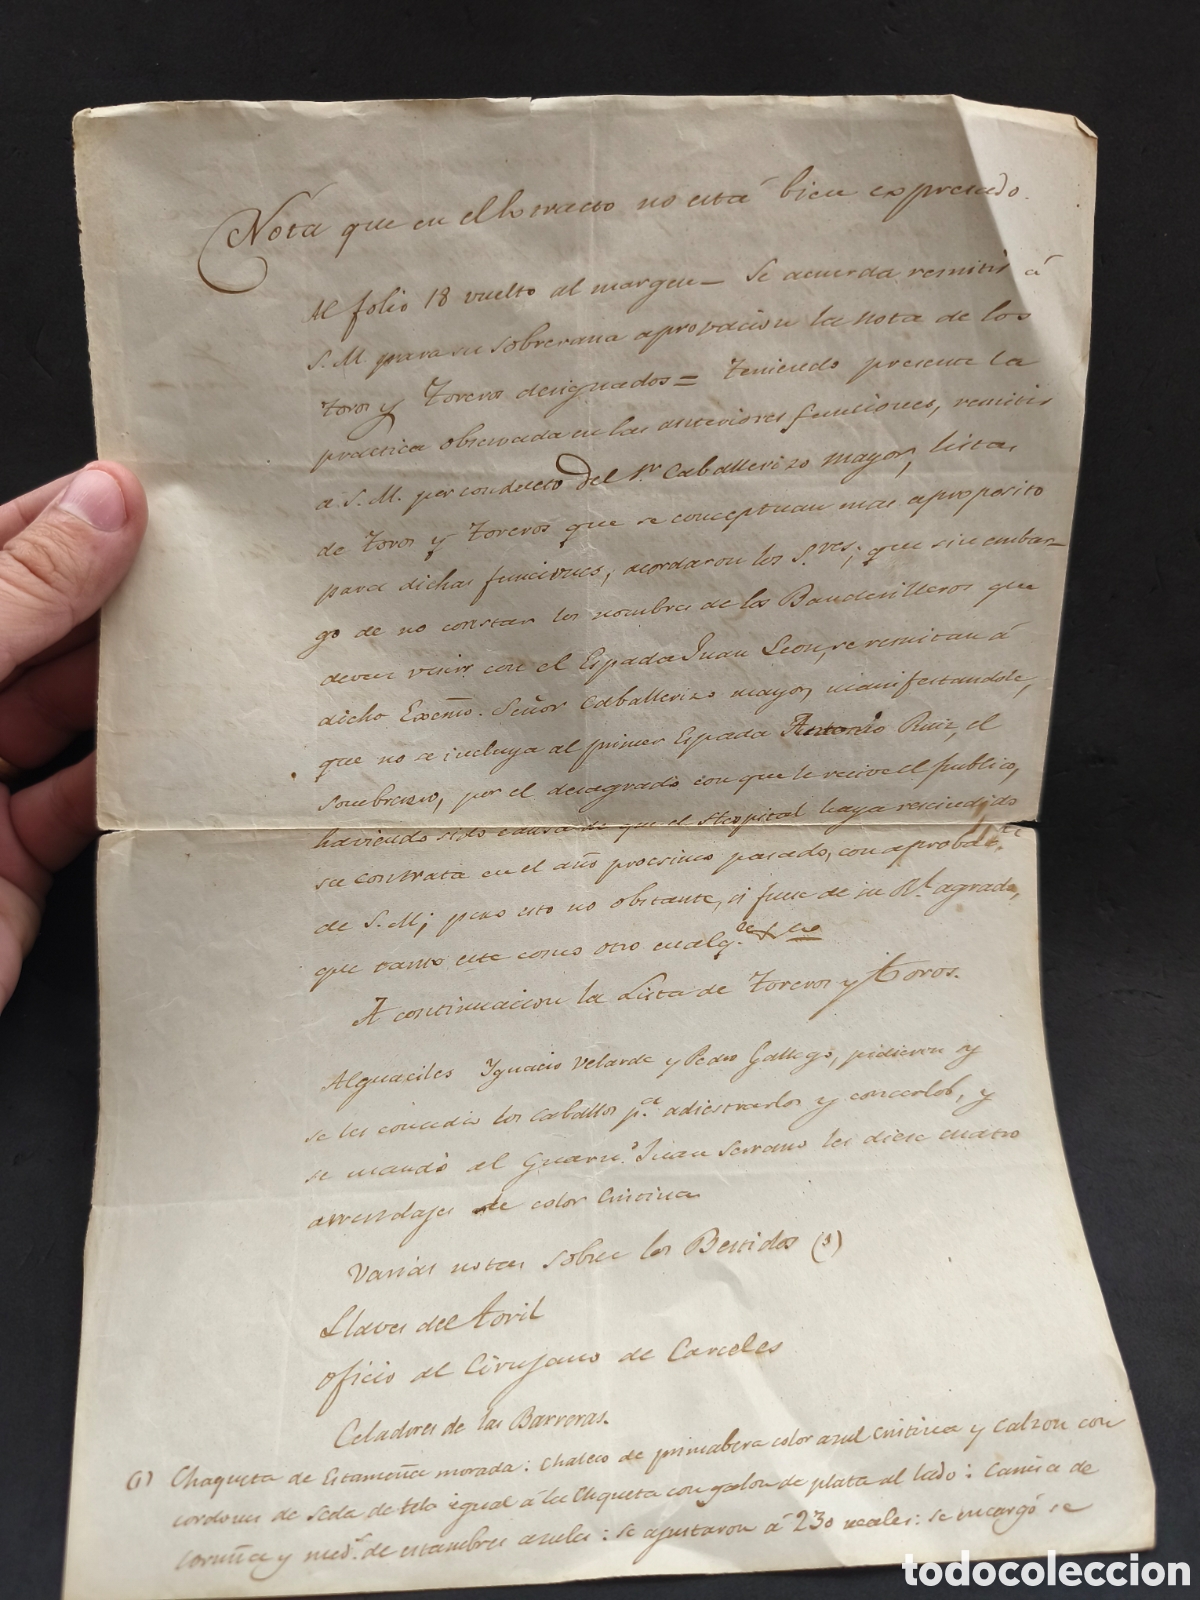 Nota que en el Extracto no está bien expresado.
Al folio 18 vuelto al margen - Se acuerda remitir á
S. M. para su soberana aprovacion la nota de los
Toros y Toreros designados = Teniendo presente la
practica observada en las anteriores funciones, remitir
a S. M. por conducto del Sr. Caballerizo mayor, listas
de Toros y Toreros que se conceptuan mas aproposito
para dichas funciones, acordaron los S.res; que sin embar-
go de no constar los nombres de los Banderilleros que
deven venir con el Espada Juan Leon, se remitan á
dicho Excmo. Señor Caballerizo mayor, manifestandole,
que no se incluya al primer Espada Antonio Ruiz, el
Sombrerero, por el desagrado con que le recive el publico,
haviendo sido causa de que el Hospital haya rescindido
su contrata en el año procsimo pasado, con aprobac.
de S. M; pero esto no obstante, si fuese de su Rl. agrado,
que tanto este como otro cualq.
A continuacion la Lista de Toreros y Toros.
Alguaciles Ignacio Velarde y Pedro Gallego, pidieron y
se les concedio los caballos p.a adiestrarlos y conocerlos, y
se mandó al Guarn. Juan Serrano les diese cuatro
arrendajes de color
Varias notas sobre los Bestidos
Llaves del Toril
Oficio al Cirujano de Carceles
Celadores de las Barreras.
(1) Chaqueta de Estameña morada: Chaleco de primabera color azul y Calzon con
cordones de seda de tela igual á la Chqueta con galon de plata al lado: Camisa de
Coruña y med.s de estambres azules: se ajustaron á 230 reales: se encargó se
todocoleccion